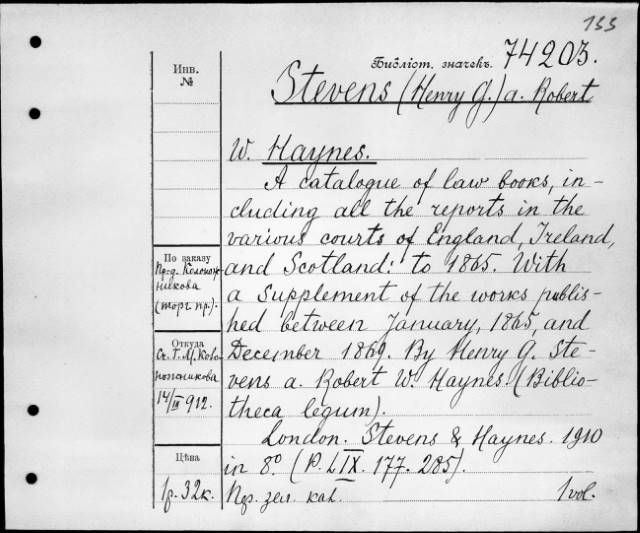 133
Библіот. значекъ. 74203.
Инв.
№
Stevens (Henry G.) a. Robert
W. Haynes.
A catalogue of law books, in-
cluding all the reports in the
various courts of England, Ireland,
and Scotland: to 1865. With
a Supplement of the works publis-
hed between January, 1865, and
December 1869. By Henry G. Ste-
vens a. Robert W. Haynes. (Biblio-
theca legum).
London. Stevens & Haynes. 1910
in 8º. (P. LIX. 177. 285).
Пер. зел. кал. 1 vol.
По заказу
никова
(торг. пр.).
Откуда
14/III 912.
Цѣна
1р. 32к.